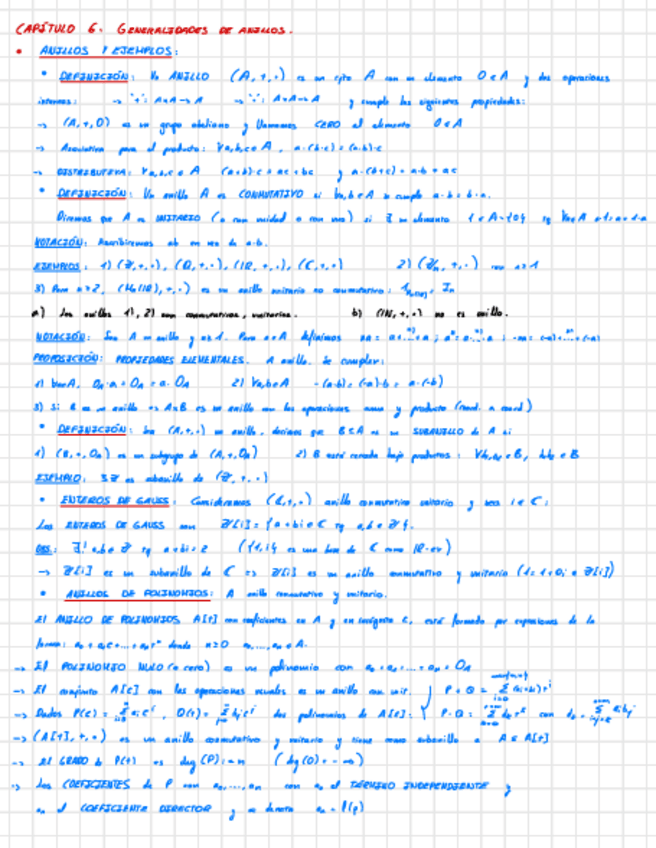 CAPÍTULO 6. GENERALIDADES DE ANILLOS.
• ANILLOS Y EJEMPLOS:
• DEFINICIÓN: Un ANILLO (A,+,·) es un cjto A con un elemento 0∈A y dos operaciones
internas: → "+": A×A→A → "·": A×A→A y cumple las siguientes propiedades:
→ (A,+,0) es un grupo abeliano y llamamos CERO al elemento 0∈A
→ Asociativa para el producto: ∀a,b,c∈A, a·(b·c)=(a·b)·c
→ DISTRIBUTIVA: ∀a,b,c∈A (a+b)·c = ac+bc y a·(b+c) = a·b + ac
• DEFINICIÓN: Un anillo A es CONMUTATIVO si ∀a,b∈A se cumple a·b = b·a.
Diremos que A es UNITARIO (o con unidad o con uno) si ∃ un elemento 1∈A-{0} tq ∀a∈A a·1=1·a=a
NOTACIÓN: Escribiremos ab en vez de a·b.
EJEMPLOS: 1) (ℤ,+,·), (ℚ,+,·), (ℝ,+,·), (ℂ,+,·) 2) (ℤn,+,·) con n>1
3) Para n≥2, (Mn(ℝ),+,·) es un anillo unitario no conmutativo:
a) Los anillos 1), 2) son conmutativos, unitarios. b) (ℕ,+,·) no es anillo.
NOTACIÓN: Sea A un anillo y n≥1. Para a∈A definimos
PROPOSICIÓN: PROPIEDADES ELEMENTALES. A anillo. Se cumplen:
1) ∀a∈A, 0A·a = 0A = a·0A 2) ∀a,b∈A -(a·b) = (-a)·b = a·(-b)
3) Si B es un anillo => A×B es un anillo con las operaciones suma y producto (coord. a coord.)
• DEFINICIÓN: Sea (A,+,·) un anillo, decimos que B⊆A es un SUBANILLO de A si
1) (B,+,0A) es un subgrupo de (A,+,0A) 2) B está cerrado bajo productos: ∀b1,b2∈B, b1b2∈B
EJEMPLO: 3ℤ es subanillo de (ℤ,+,·)
• ENTEROS DE GAUSS: Consideramos (ℂ,+,·) anillo conmutativo unitario y sea i∈ℂ:
Los ENTEROS DE GAUSS son ℤ[i] = {a+bi∈ℂ tq a,b∈ℤ}.
OBS: ∃! a,b∈ℤ tq a+bi=z ({1,i} es una base de ℂ como ℝ-ev)
→ ℤ[i] es un subanillo de ℂ => ℤ[i] es un anillo conmutativo y unitario (1=1+0i∈ℤ[i])
• ANILLOS DE POLINOMIOS: A anillo conmutativo y unitario.
El ANILLO DE POLINOMIOS A[t] con coeficientes en A y en incógnita t, está formado por expresiones de la
forma: a0+a1t+...+ant^n donde n≥0 a0,...,an∈A.
→ El POLINOMIO NULO (o cero) es un polinomio con a0=a1=...=an=0A
→ El conjunto A[t] con las operaciones usuales es un anillo con. unit.
→ Dados P(t) = Q(t) = dos polinomios de A[t]:
→ (A[t],+,·) es un anillo conmutativo y unitario y tiene como subanillo a A⊆A[t]
→ El GRADO de P(t) es deg(P):=n (deg(0)=-∞)
→ Los COEFICIENTES de P son a0,...,an con a0 el TÉRMINO INDEPENDIENTE y
an el COEFICIENTE DIRECTOR y se denota an=l(p)